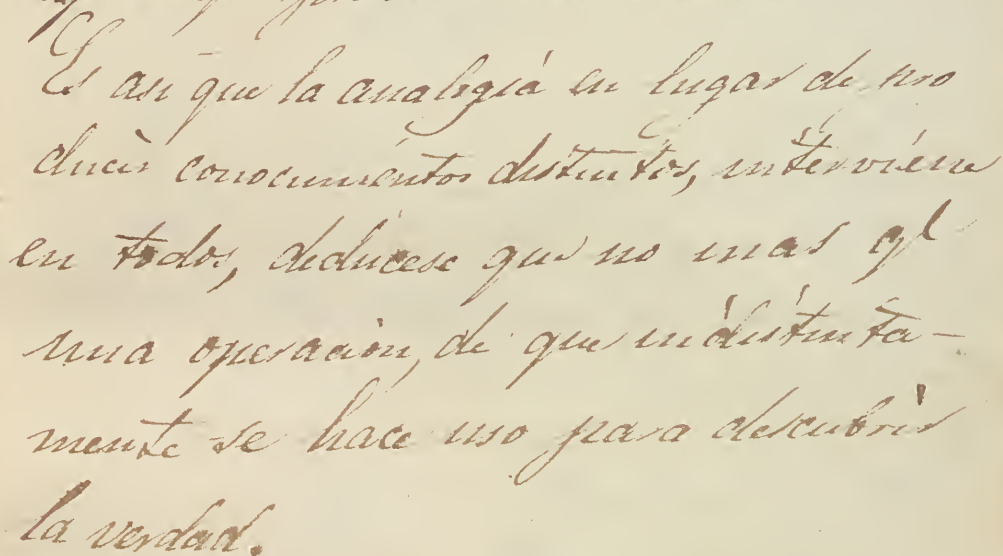 Es asi que la analogiá en lugar de pro
ducir conocimientos distintos, interviene
en todos, dedúcese que no mas q!
una operacion, de que indistinta-
mente se hace uso para descubrir
la verdad.